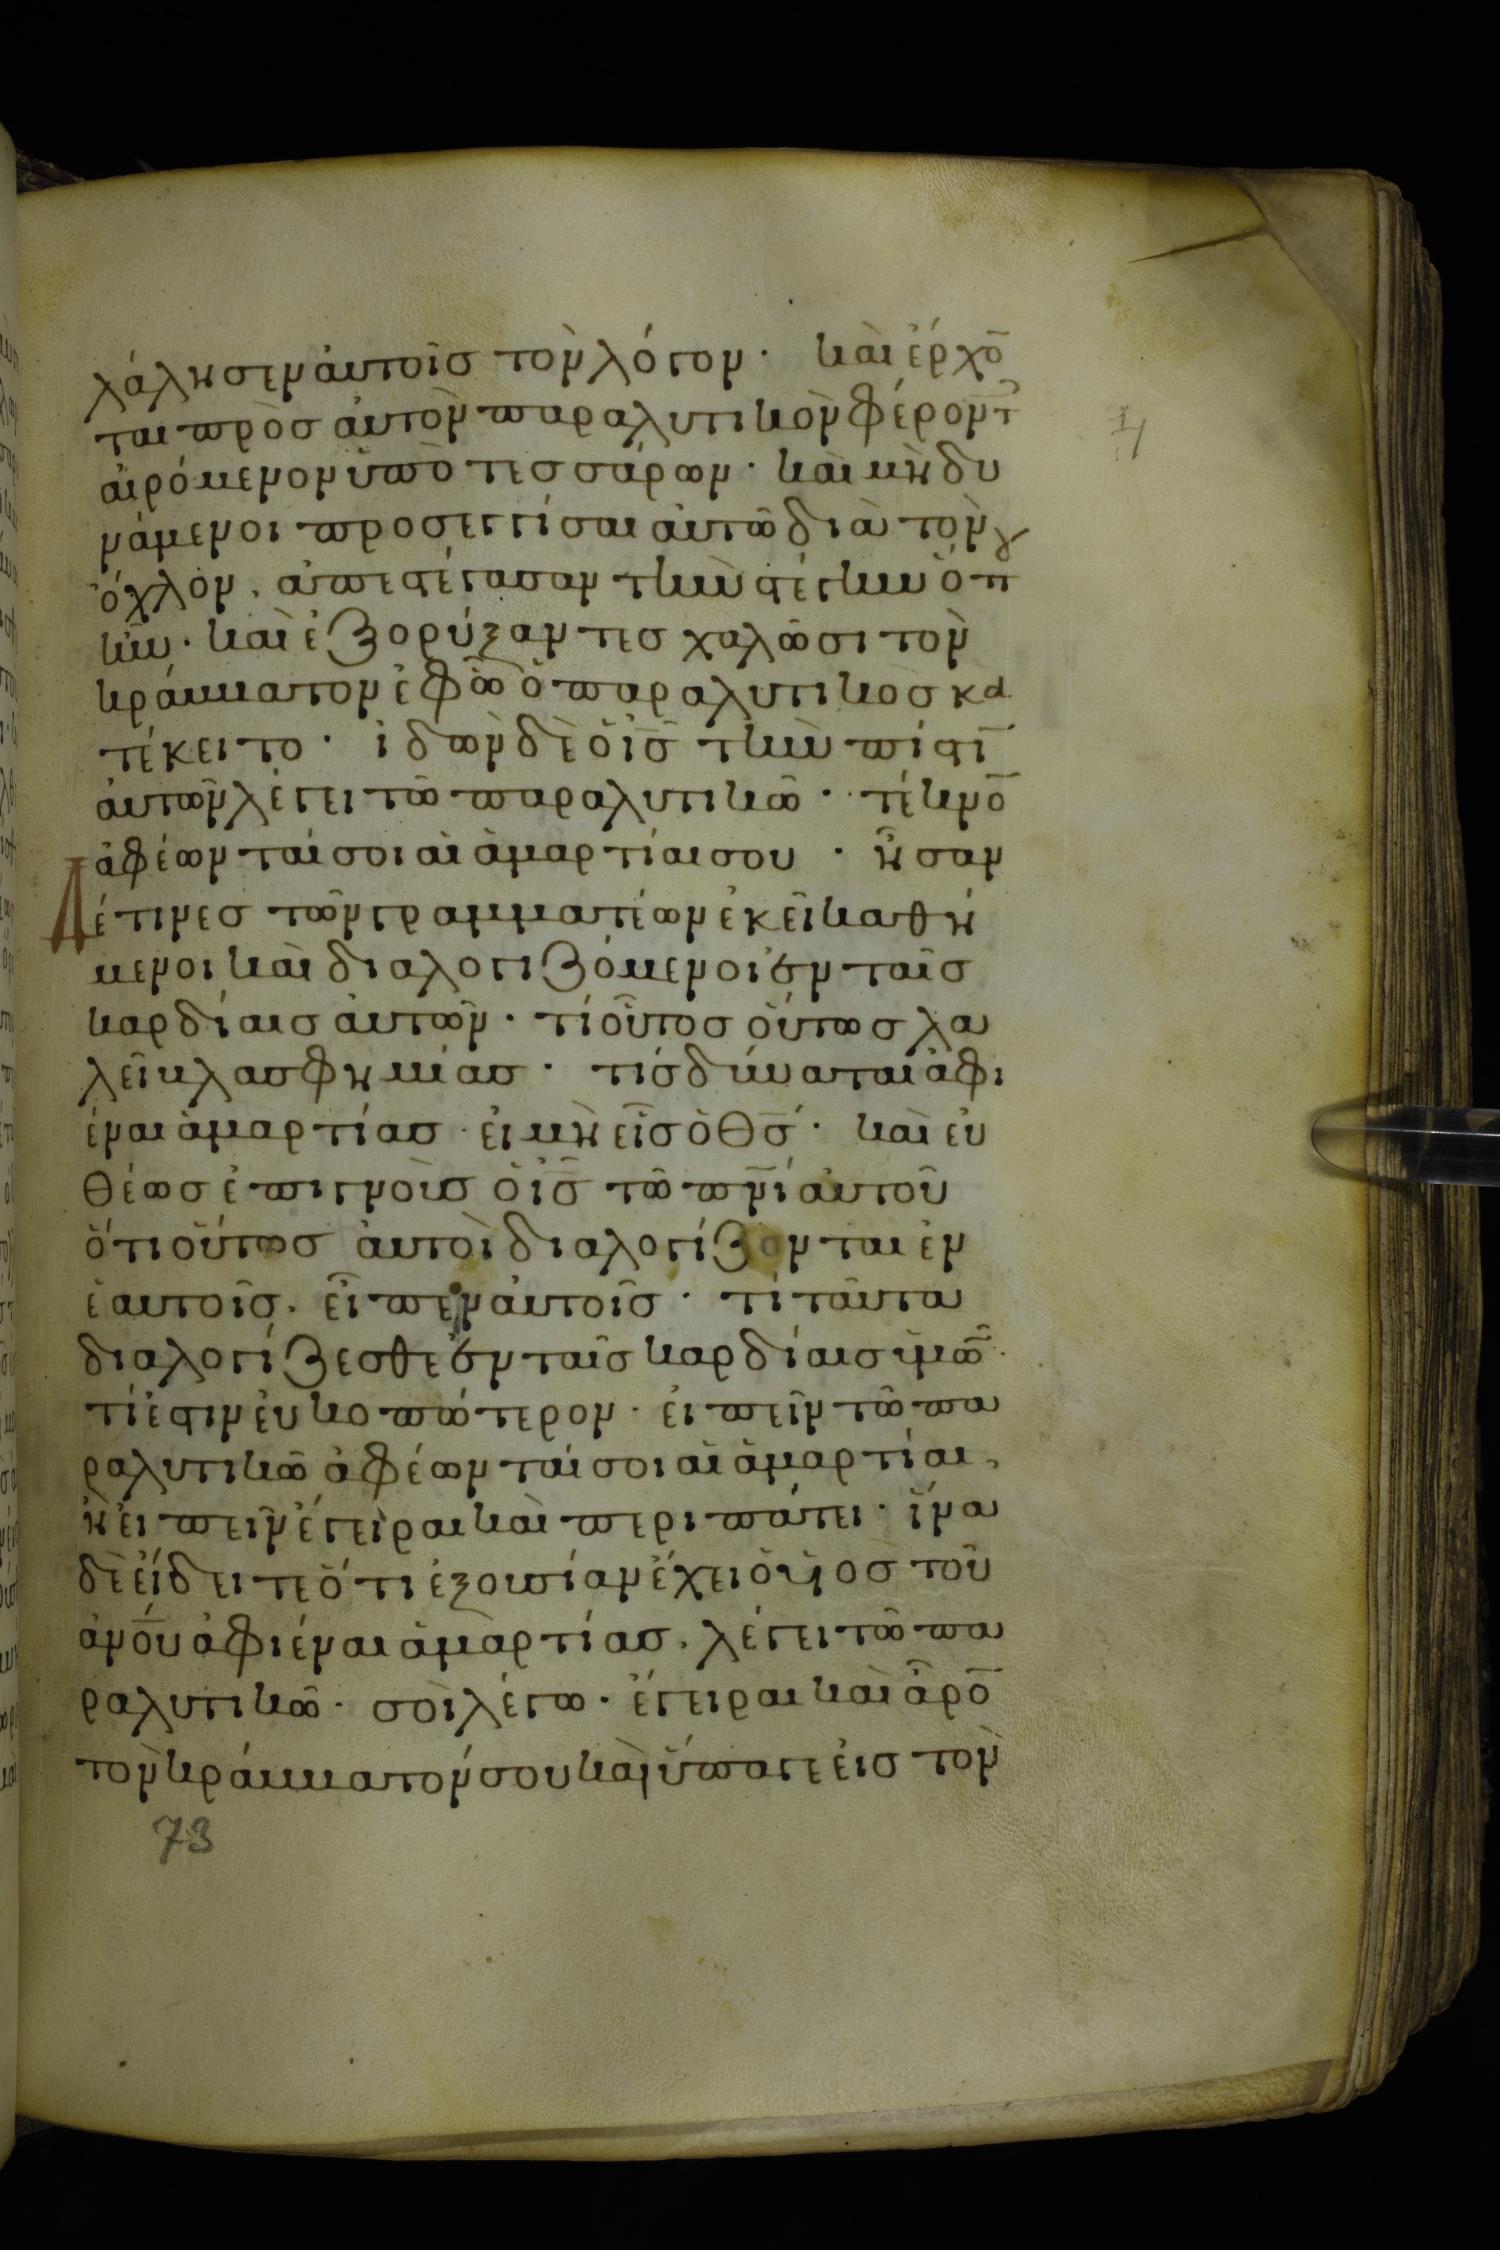 λάλησεν ἀυτοῖσ τὸν λόγον· καὶ ἔρχο̅
ται πρὸσ ἀυτὸν παραλυτικὸν φέρον̅τ
ἀιρόμενον ὑπὸ τεσσάρων· καὶ μὴ δυ
νάμενοι προσεγγίσαι ἀυτῶ διὰ τὸν
ὄχλον, ἀπεστέγασαν τὴν στέγην ὅπ
ἦν· καὶ ἐξορύξαντεσ χαλῶσι τὸν
κράμματον ἐφ ὧ ὁ παραλυτικὸσ κα
τέκειτο· ἰδὼν δὲ ὁ ισ̅ τὴν πίστι̅
ἀυτῶν λέγει τῶ παραλυτικῶ· τέκνο̅
ἀφέωνταί σοι αἱ ἁμαρτίαι σου· ἦσαν
Δέ τινεσ τῶν γραμματέων ἐκεῖ καθή
μενοι καὶ διαλογιζόμενοι ἐν ταῖσ
καρδίαισ ἀυτῶν· τί οὗτοσ οὕτωσ λα
λεῖ βλασφημίασ· τίσ δύναται ἀφι
έναι ἁμαρτίασ· ἐι μὴ εἷσ ὁ Θσ̅· καὶ ἐυ
θέωσ ἐπιγνοὺσ ὁ ισ̅ τῶ πν̅ι ἀυτοῦ
ὅτι οὕτωσ ἀυτοὶ διαλογίζονται ἐν
ἑαυτοῖσ, εἶπεν ἀυτοῖσ· τί ταῦτα
διαλογίζεσθε ἐν ταῖσ καρδίαισ ὑμῶ̅·
τί ἐστιν ἐυκοπώτερον· ἐιπεῖν τῶ πα
ραλυτικῶ ἀφέωνταί σοι αἱ ἁμαρτίαι,
ἢ ἐιπεῖν ἔγειραι καὶ περιπάτει· ἵνα
δὲ ἐίδειτε ὅτι ἐξουσίαν ἔχει ὁ υἱὸσ τοῦ
ἀν̅ου ἀφιέναι ἁμαρτίασ, λέγει τῶ πα
ραλυτικῶ· σοὶ λέγω· ἔγειραι καὶ ἆρο̅
τὸν κράμματόν σου καὶ ὕπαγε ἐισ τὸν
73